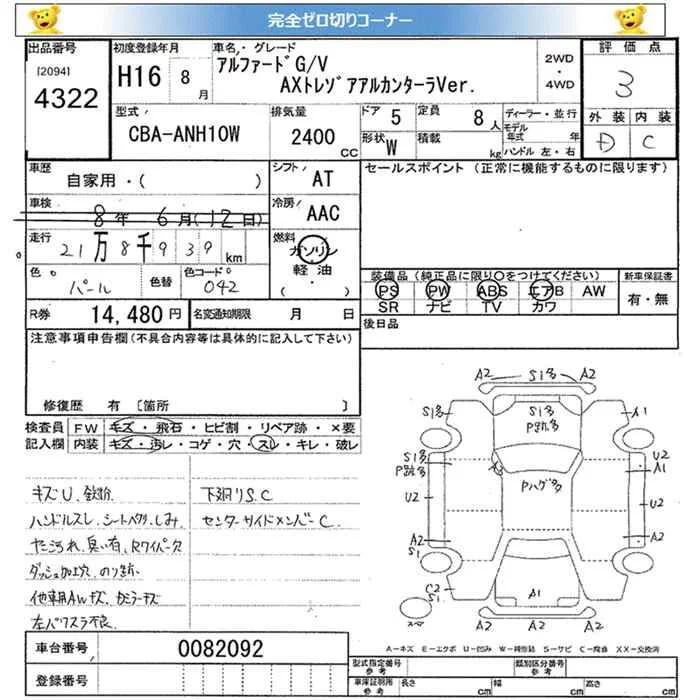 完全ゼロ切りコーナー
出品番号
[2094]
4322
初度登録年月
H16 8月
車名・グレード
アルファードG/V
AXトレゾアアルカンターラVer.
2WD・4WD
評価点
3
型式
CBA-ANH10W
排気量
2400 CC
ドア 5
定員 8人
形状 W
積載 kg
ディーラー・並行
モデル年式 年
ハンドル 左・右
外装 内装
D C
車歴
自家用・( )
シフト AT
セールスポイント (正常に機能するものに限ります)
車検
8年 6月(12日)
冷房 AAC
走行
21万8千939km
燃料
ガソリン
軽油
( ・ )
色 パール
色替
色コード 042
装備品(純正品に限り○をつけてください)
PS PW ABS エアB AW
SR ナビ TV カワ
新車保証書
有・無
R券 14,480円
名変通知期限 月 日
後日品
注意事項申告欄(不具合内容等は具体的に記入して下さい)
修復歴 有 [箇所 ]
検査員記入欄
FW キズ・飛石・ヒビ割・リペア跡・×要
内装 キズ・汚レ・コゲ・穴・スレ・キレ・破レ
キズU、鉄粉
下廻りS.C
ハンドルスレ、シートヘタリ、しみ
センターサイドメンバーC
臭い有、Rワイパー欠
ダッシュ加工穴、のり跡
他車用AWキズ、カビラーキズ
左バイスラ不良
車台番号 0082092
登録番号
A2 S1多 A2
S1多
S1多
P跳多
A1
S1多
P跳多
U2
A1
A3
Pハゲ多
U2
U2
A2
A2
S1
C2
S1
A1
A2 A2 A2
A-キズ E-エクボ U-凹み W-補修跡 S-サビ C-腐食 XX-交換済
型式指定番号 参考
類別区分番号 参考
車庫証明用 参考
長さ cm
幅 cm
高さ cm